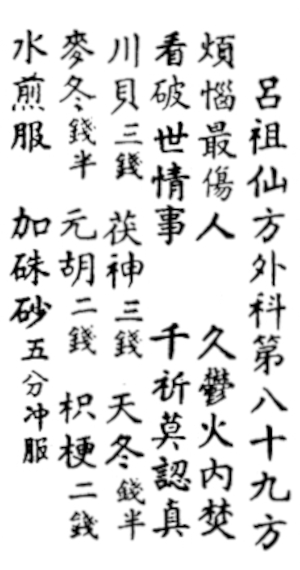 呂祖仙方外科第八十九方
煩惱最傷人 久鬱火内焚
看破世情事 千祈莫認真
川貝三錢 茯神三錢 天冬錢半
麥冬錢半 元胡二錢 枳梗二錢
水煎服 加硃砂五分冲服